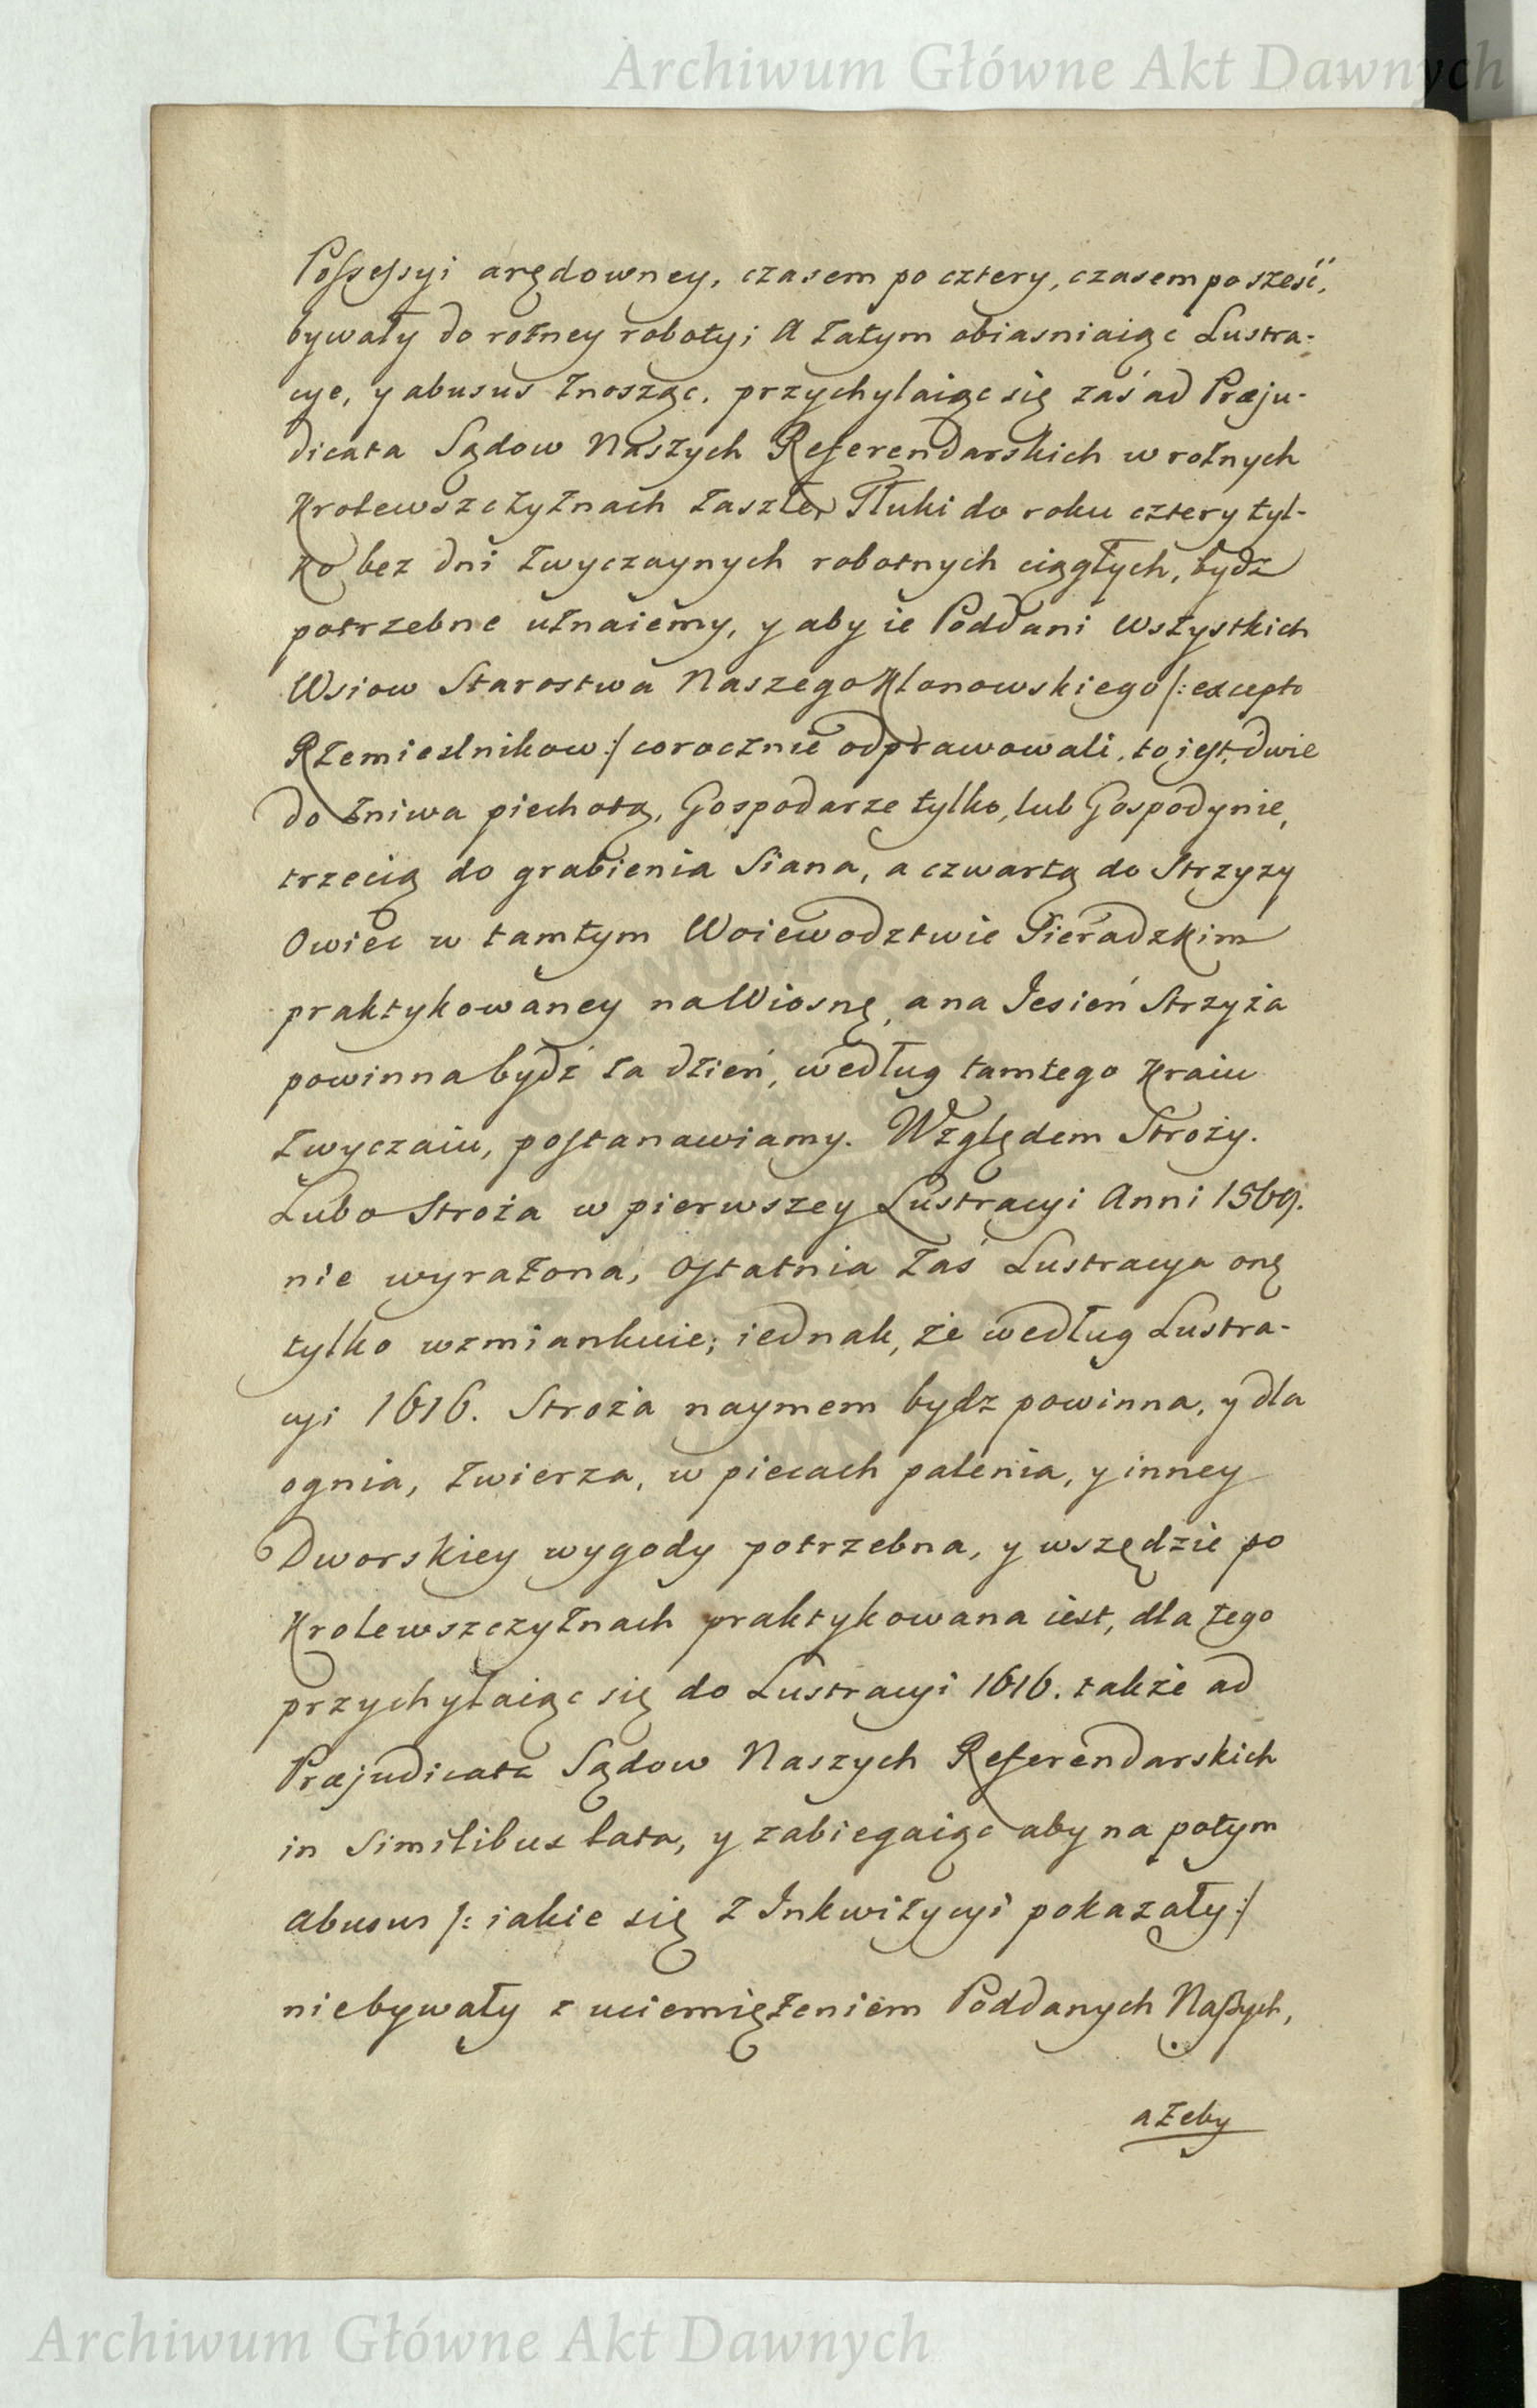 Archiwum Główne Akt Dawnych
Possessyi arędowney, czasem po cztery, czasem po sześć,
bywały do rożney roboty; A zatym obiasniaiąc Lustra-
cye, y abusus znosząc, przychylaiąc się zaś ad Præju-
dicata Sądow Naszych Referendarskich w rożnych
Krolewszczyznach zaszłe, Tłuki do roku cztery tyl-
ko, bez dni zwyczaynych robotnych ciągłych, bydź
potrzebne uznaiemy, y aby ie Poddani Wszystkich
Wsiow Starostwa Naszego Klonowskiego /: excepto
Rzemieslnikow :/ corocznie odprawowali, to iest, dwie
do żniwa piechotą, Gospodarze tylko, lub Gospodynie,
trzecią do grabienia Siana, a czwartą do Strzyży
Owiec w tamtym Woiewodztwie Sieradzkim
praktykowaney na Wiosnę, a na Jesień Strzyża
powinna bydź za dzień, według tamtego Kraiu
zwyczaiu, postanawiamy. Względem Stroży.
Lubo Stroża w pierwszey Lustracyi Anni 1569.
nie wyrażona, ostatnia zaś Lustracya onę
tylko wzmiankuie; iednak, że według Lustra-
cyi 1616. Stroża naymem bydz powinna, y dla
ognia, zwierza, w piecach palenia, y inney
Dworskiey wygody potrzebna, y wszędzie po
Krolewszczyznach praktykowana iest, dla tego
przychylaiąc się do Lustracyi 1616. także ad
Præjudicata Sądow Naszych Referendarskich
in Similibus lata, y zabiegaiąc aby na potym
abusus /: iakie się z Inkwizycyi pokazały :/
niebywały z uciemiężeniem Poddanych Naszych,
ażeby
Archiwum Główne Akt Dawnych